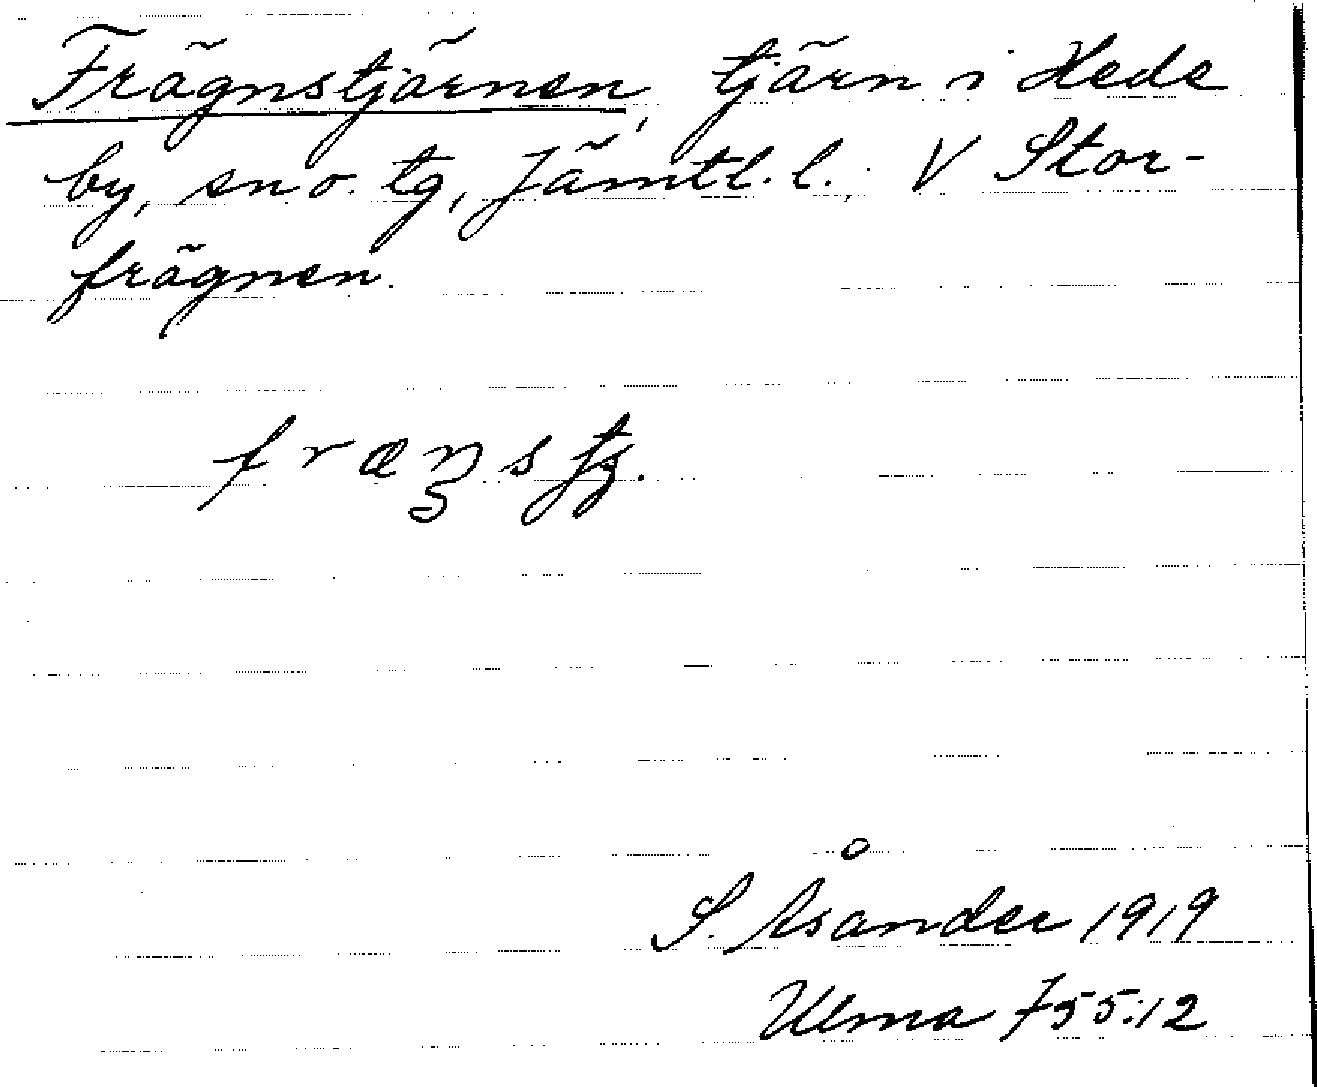 Frägnstjärnen, tjärn i Hede
by, sn o. tg, Jämtl. l. V Stor-
frägnen.
S. Åsander 1919
Ulma 755:12